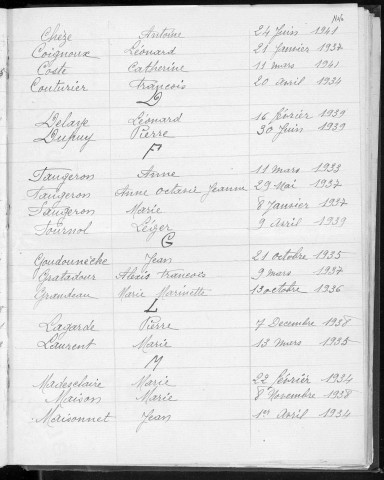 Chèze Antoine 24 Juin 1941
Coignoux Léonard 21 Janvier 1937
Coste Catherine 11 mars 1941
Couturier François 20 avril 1934
D
Delage Léonard 16 février 1939
Dupuy Pierre 30 Juin 1939
F
Faugeron Anne 11 mars 1933
Faugeron Anne Octavie Jeanne 29 Mai 1937
Faugeron Marie 8 Janvier 1937
Fournol Léger 9 avril 1939
G
Goudouneche Jean 21 octobre 1935
Gratadour Alexis Francois 9 mars 1937
Grandeau Marie Marinette 13 octobre 1936
L
Lagarde Pierre 7 Decembre 1938
Laurent Marie 13 Mars 1935
M
Madegelaire Marie 22 février 1934
Maison Marie 8 Novembre 1938
Maisonnet Jean 1er Avril 1934